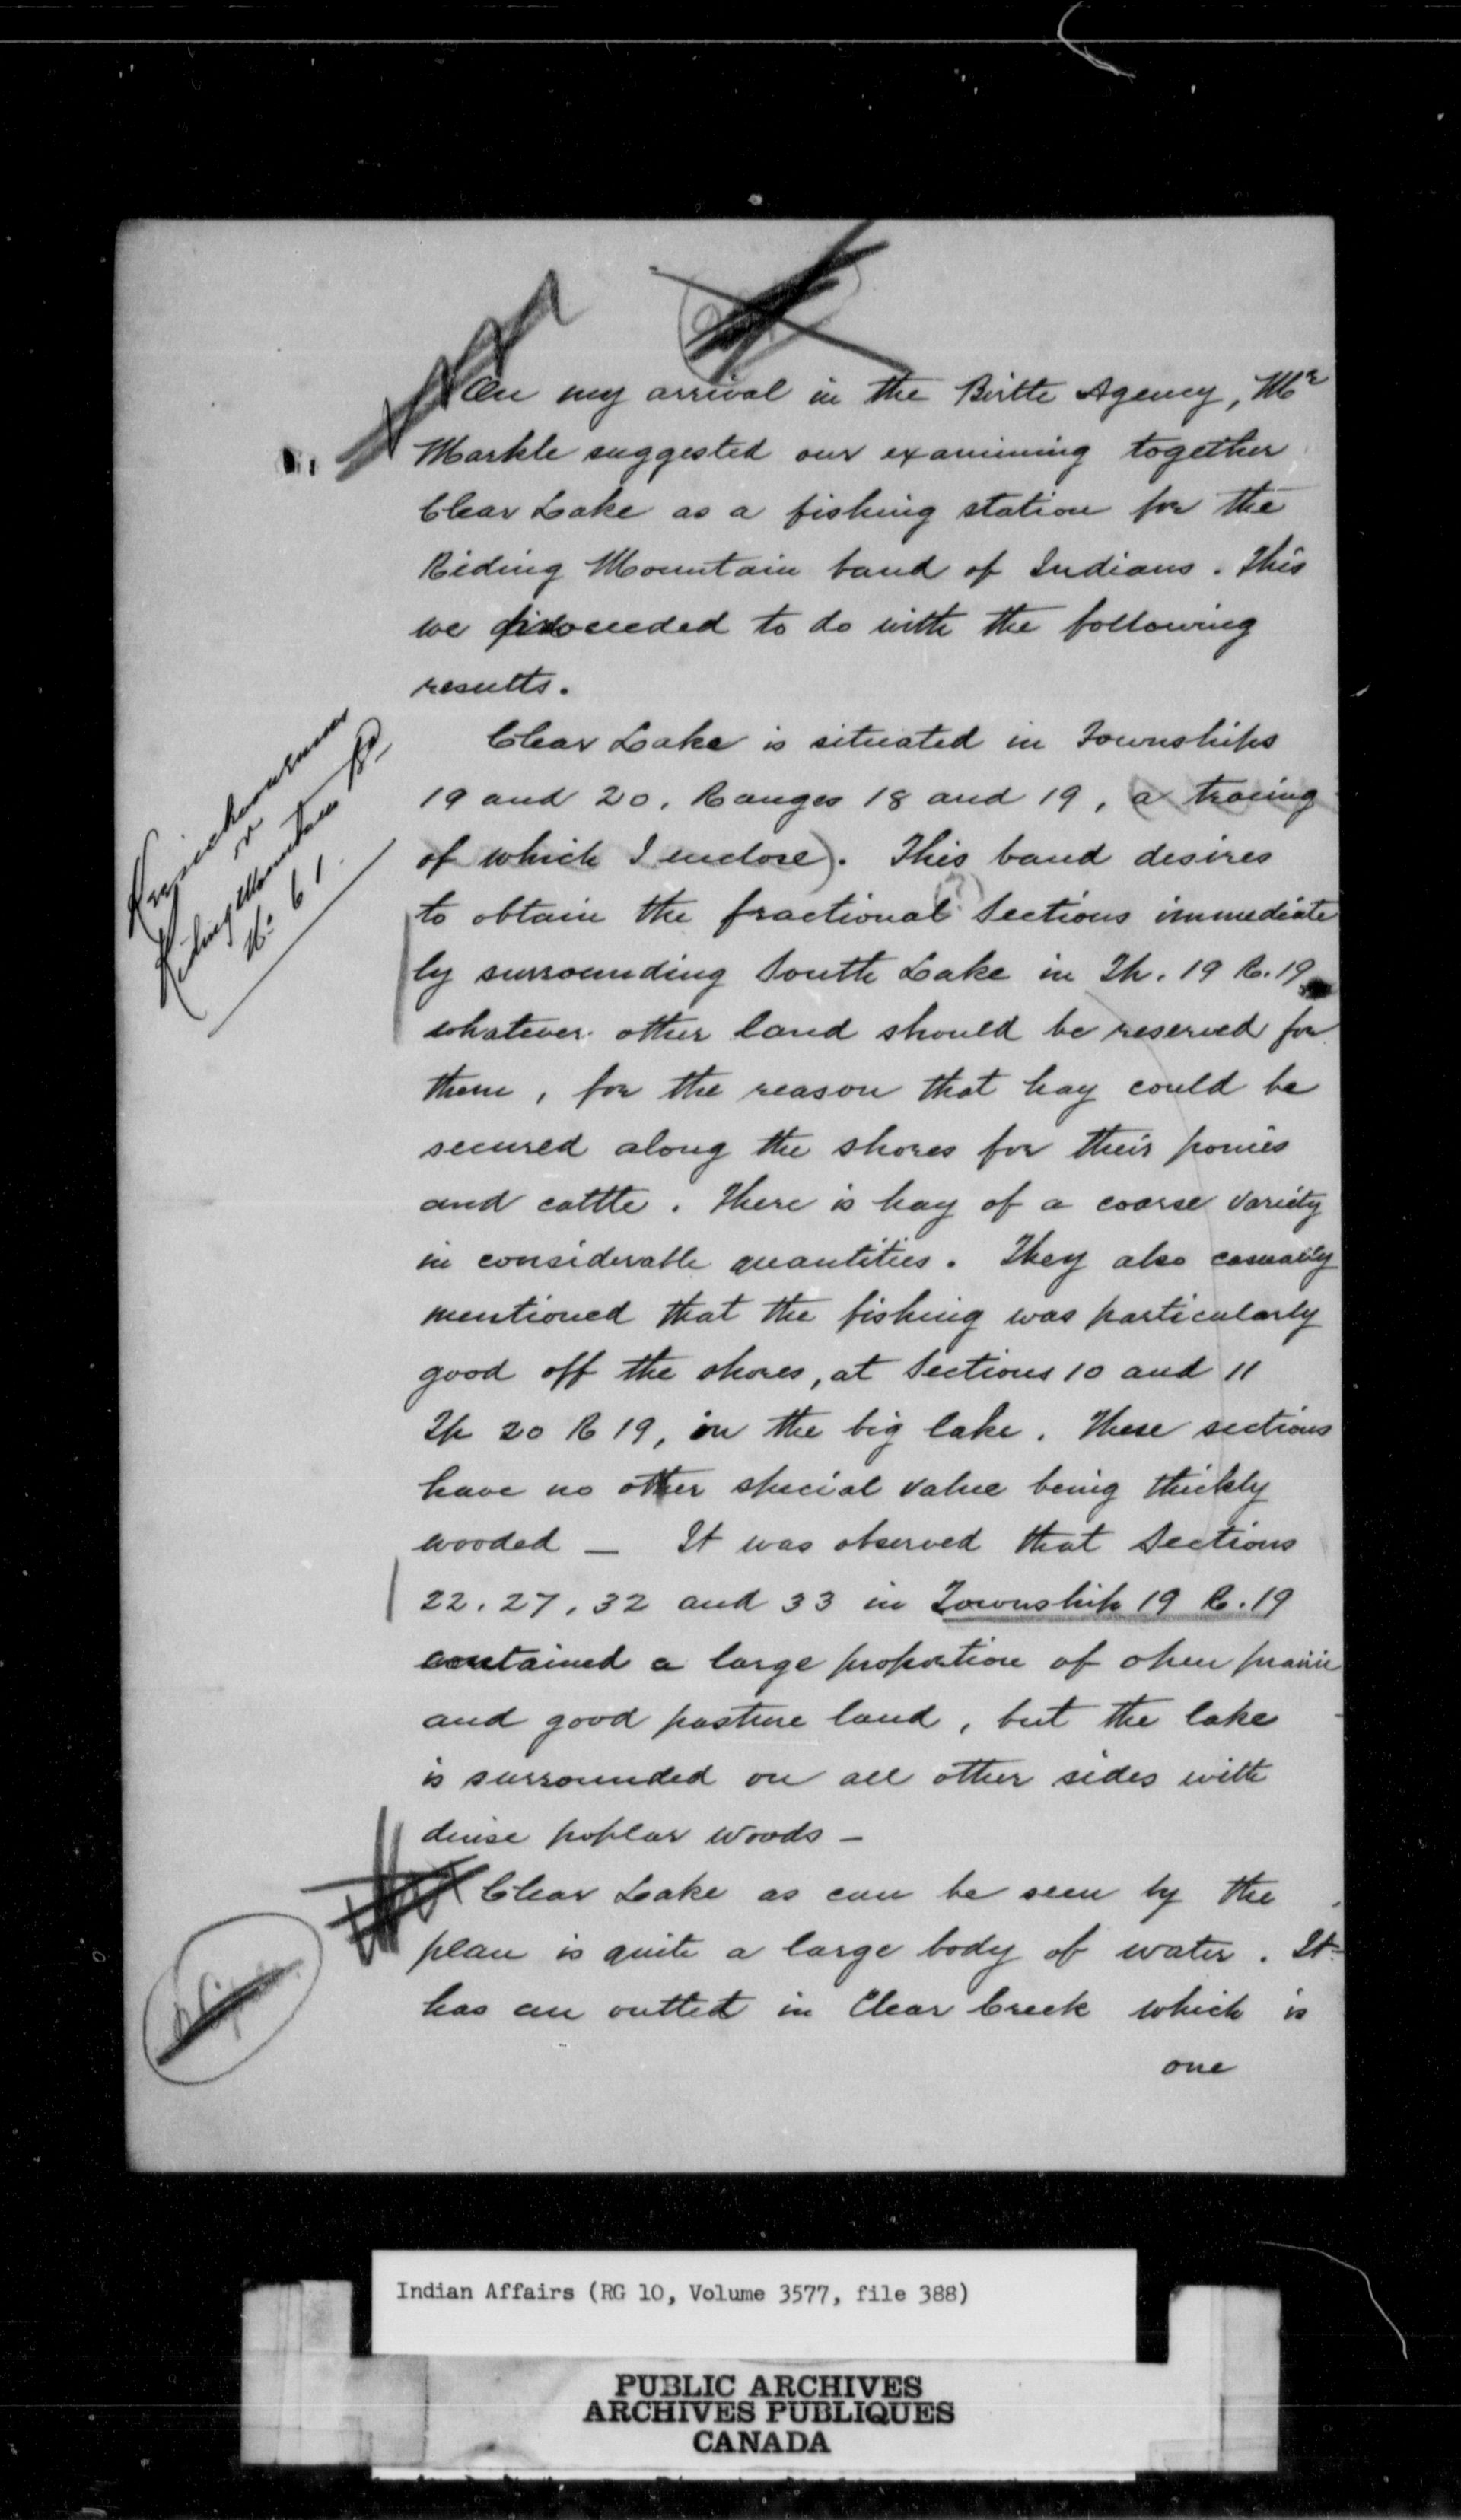 On my arrival in the Birtle Agency, Mr
Markle suggested our examining together
Clear Lake as a fishing station for the
Riding Mountain band of Indians. This
we proceeded to do with the following
results.
Clear Lake is situated in Townships
19 and 20. Ranges 18 and 19, (a tracing
of which I enclose). This band desires
to obtain the fractional (?) Sections immediate
ly surrounding South Lake in Tp. 19 R. 19
whatever other land should be reserved for
them, for the reason that hay could be
secured along the shores for their ponies
and cattle. There is hay of a coarse variety
in considerable quantities. They also casually
mentioned that the fishing was particularly
good off the shores, at Sections 10 and 11
Tp 20 R 19, in the big lake. These sections
have no other special value being thickly
wooded — It was observed that Sections
22, 27, 32 and 33 in Township 19 R. 19
contained a large proportion of open prairie
and good pasture land, but the lake
is surrounded on all other sides with
dense poplar woods —
Clear Lake as can be seen by the
plan is quite a large body of water. It
has an outlet in Clear Creek which is
one
or
Riding Mountain
No. 61.
Indian Affairs (RG 10, Volume 3577, file 388)
PUBLIC ARCHIVES
ARCHIVES PUBLIQUES
CANADA